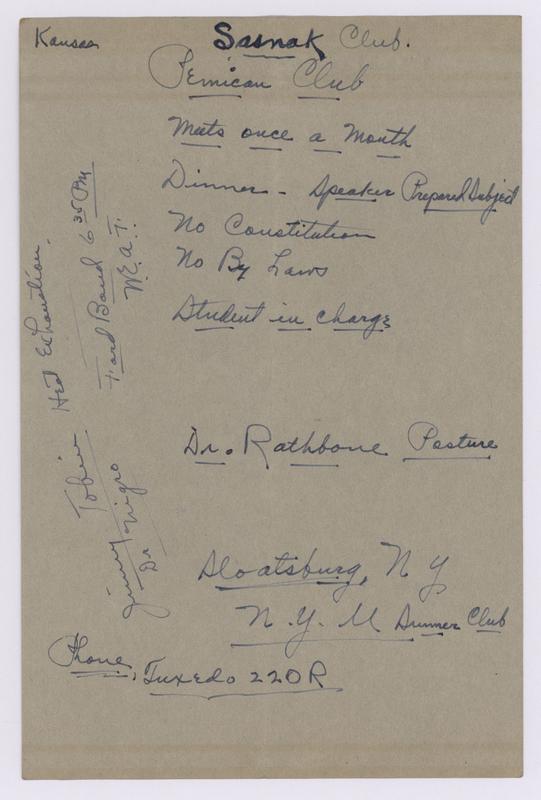 Kansas
Sasnak Club.
Pemican Club
Meets once a Month
Dinner - Speaker Prepared Subject
No Constitution
No By Laws
Student in charge
Dr. Rathbone Posture
Sloatsburg, N Y
N.Y. M Dinner Club
Phone, Tuxedo 220R
Heat Exhaustion.
Ford Band 6 35 PM
W.E.A.F.
Tobin
Jimmy Nigro
Dr